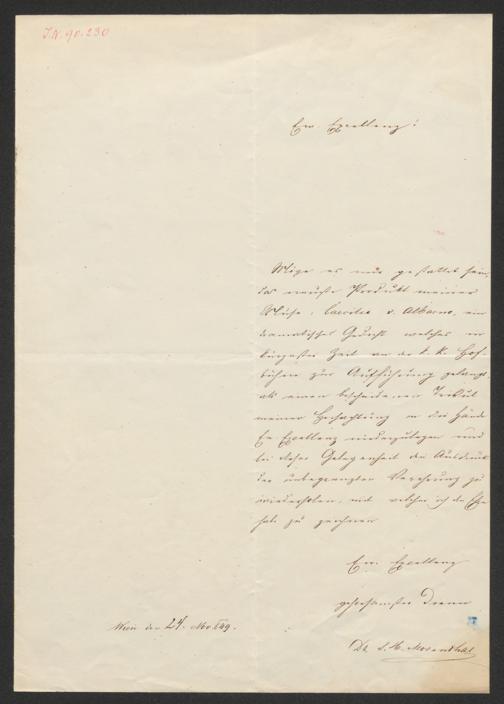 I.N. 90.230
Ew. Excellenz!
Möge es mir gestattet sein,
das neueste Produkt meiner
Muse, Caecilia v. Albano, ein
dramatisches Gedicht welches in
kürzester Zeit an der k. k. Hof-
bühne zur Aufführung gelangt,
als einen bescheidenen Tribut
meiner Hochachtung in die Hände
Ew Excellenz niederzulegen und
bei dieser Gelegenheit den Ausdruck
der unbegrenzten Verehrung zu
wiederholen, mit welcher ich die Ehre
habe zu zeichnen
Ew. Excellenz
gehorsamster Diener
Wien den 24. Nov. 849.
Dr. S. H. Mosenthal